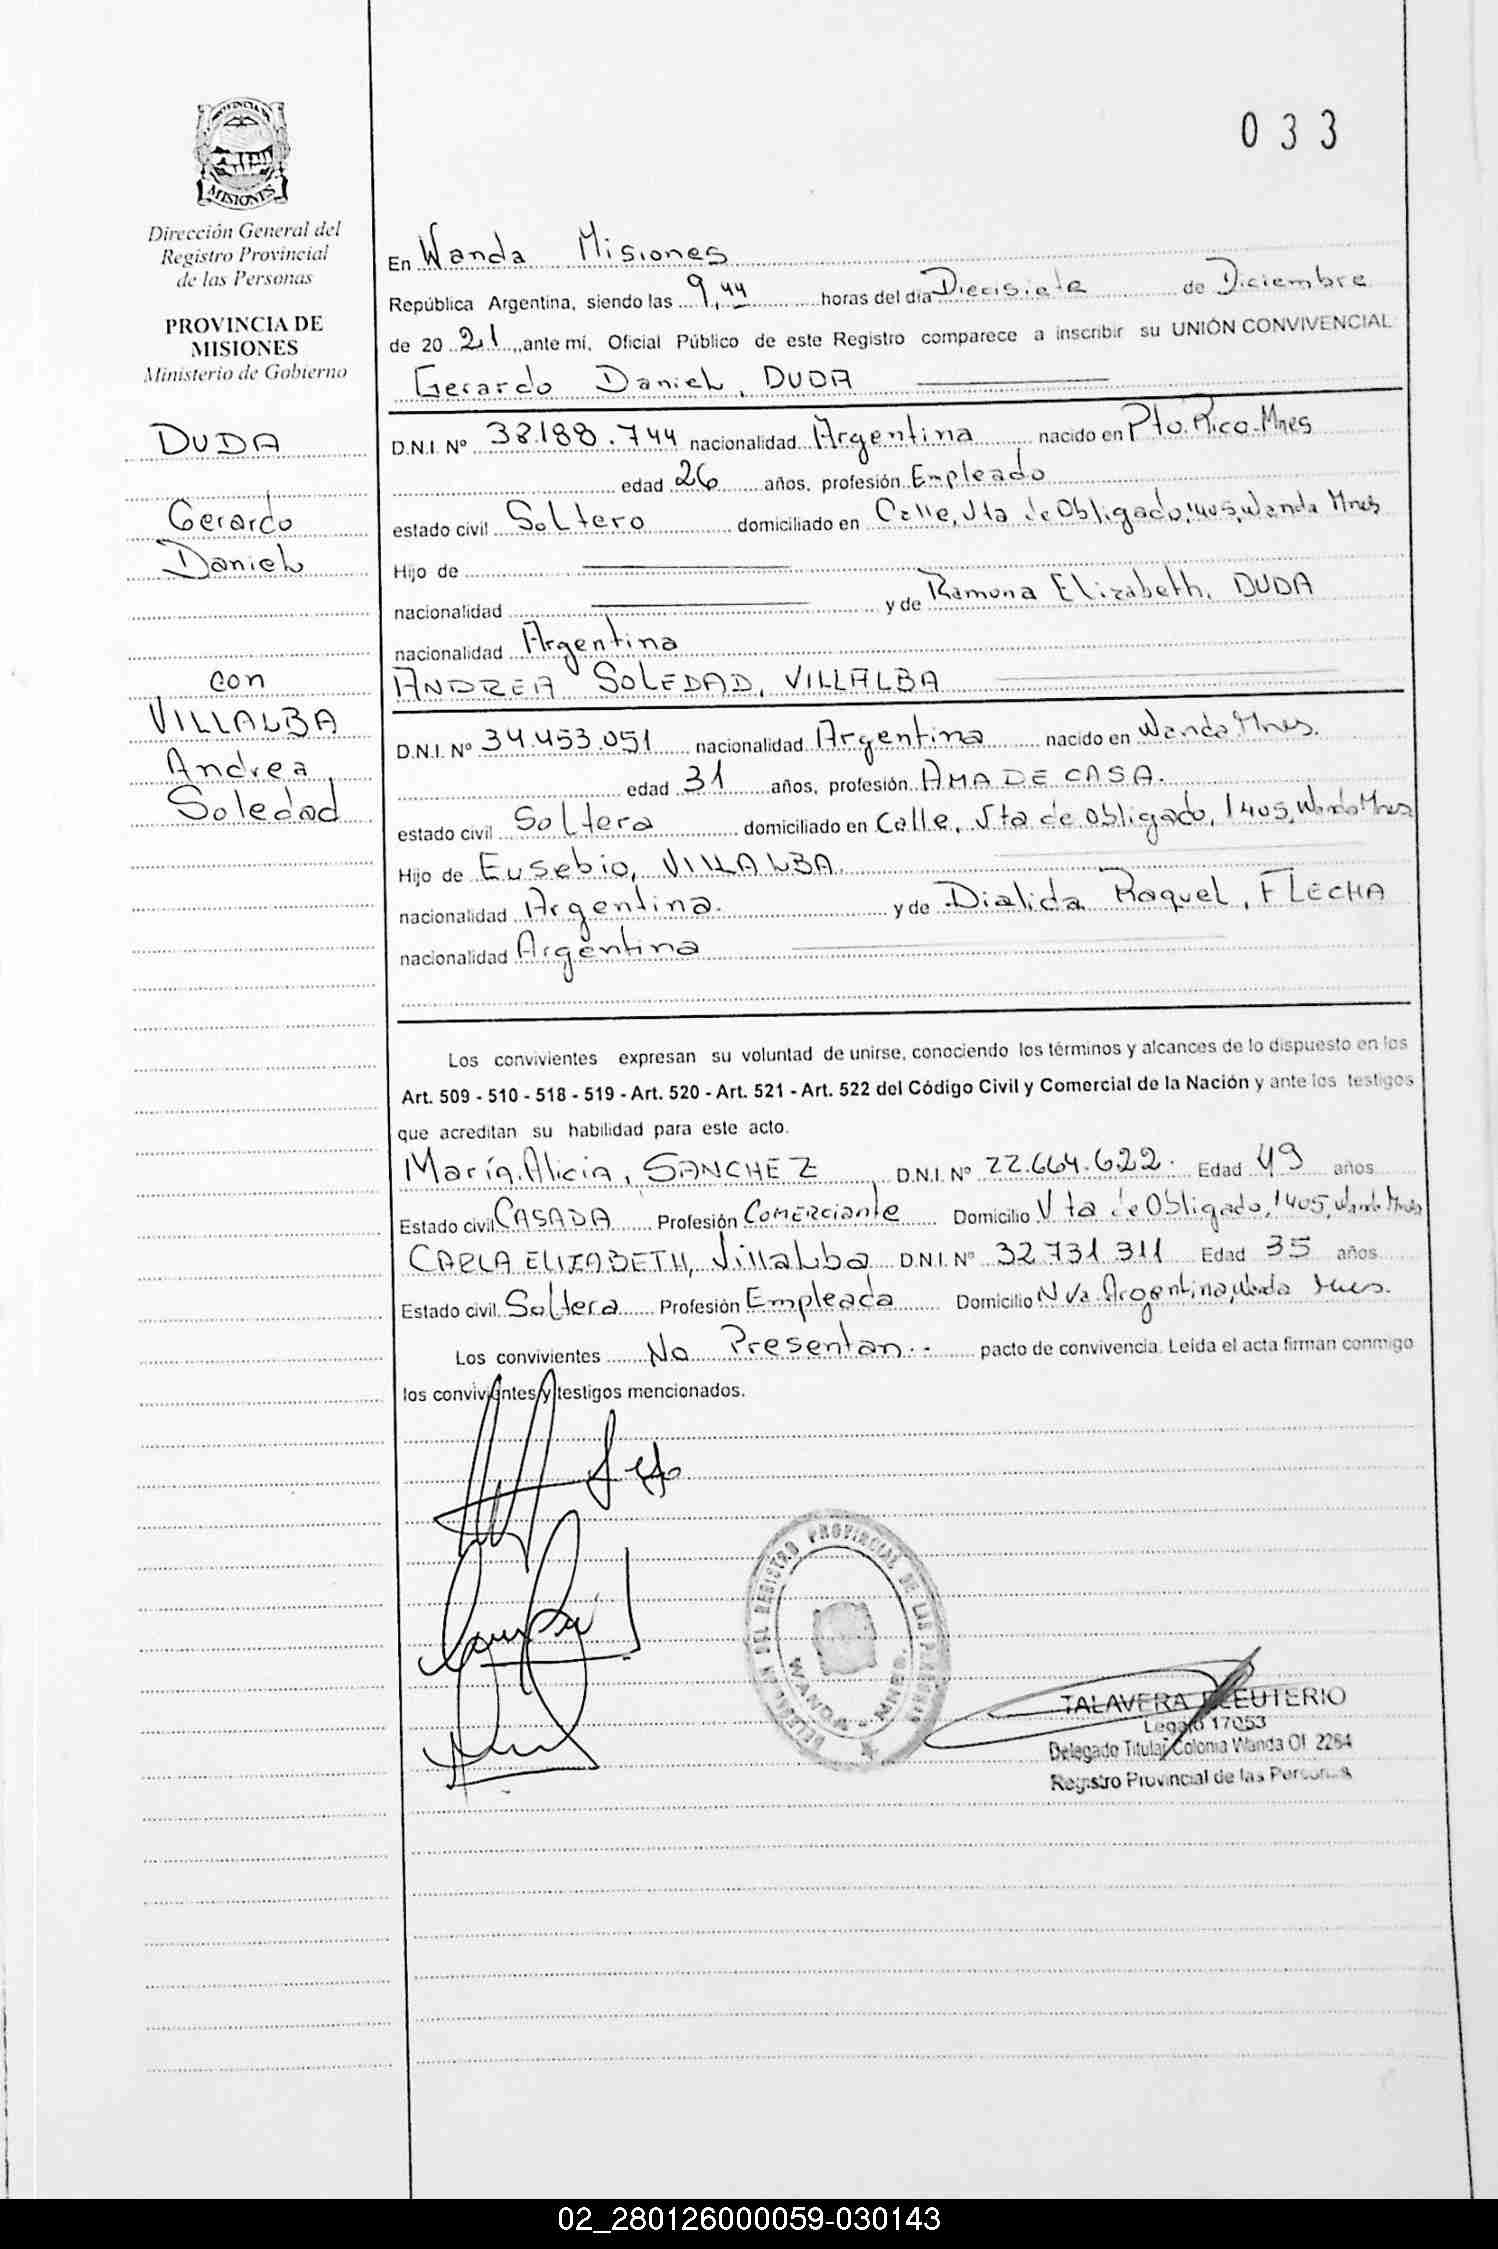 PROVINCIA DE
MISIONES
Dirección General del
Registro Provincial
de las Personas
PROVINCIA DE
MISIONES
Ministerio de Gobierno
DUDA
Gerardo
Daniel
con
VILLALBA
Andrea
Soledad
033
En Wanda Misiones
República Argentina, siendo las 9,44 horas del día Diecisiete de Diciembre
de 20 21, ante mí, Oficial Público de este Registro comparece a inscribir su UNIÓN CONVIVENCIAL
Gerardo Daniel, DUDA
D.N.I. Nº 38.188.744 nacionalidad Argentina nacido en Pto. Rico-Mnes
edad 26 años, profesión Empleado
estado civil Soltero domiciliado en Calle, Vta de Obligado, 1405, Wanda Mnes
Hijo de
nacionalidad y de Ramona Elizabeth, DUDA
nacionalidad Argentina
ANDREA SOLEDAD, VILLALBA
D.N.I. Nº 34.453.051 nacionalidad Argentina nacido en Wanda Mnes.
edad 31 años, profesión AMA DE CASA.
estado civil Soltera domiciliado en Calle, Vta de Obligado, 1405, Wanda Mnes
Hijo de Eusebio, VILLALBA.
nacionalidad Argentina. y de Dialida Raquel, FLECHA
nacionalidad Argentina
Los convivientes expresan su voluntad de unirse, conociendo los términos y alcances de lo dispuesto en los
Art. 509 - 510 - 518 - 519 - Art. 520 - Art. 521 - Art. 522 del Código Civil y Comercial de la Nación y ante los testigos
que acreditan su habilidad para este acto.
María Alicia, SANCHEZ D.N.I. Nº 22.664.622. Edad 49 años
Estado civil CASADA Profesión Comerciante Domicilio Vta de Obligado, 1405, Wanda Mnes
CARLA ELIZABETH, Villalba D.N.I. Nº 32.731.311 Edad 35 años
Estado civil Soltera Profesión Empleada Domicilio Nva Argentina, Wanda Mnes.
Los convivientes No Presentan.- pacto de convivencia. Leída el acta firman conmigo
los convivientes y testigos mencionados.
DELEGACION DEL REGISTRO PROVINCIAL DE LAS PERSONAS
WANDA - MNES.
TALAVERA ELEUTERIO
Legajo 17053
Delegado Titular Colonia Wanda Of. 2264
Registro Provincial de las Personas
02_280126000059-030143